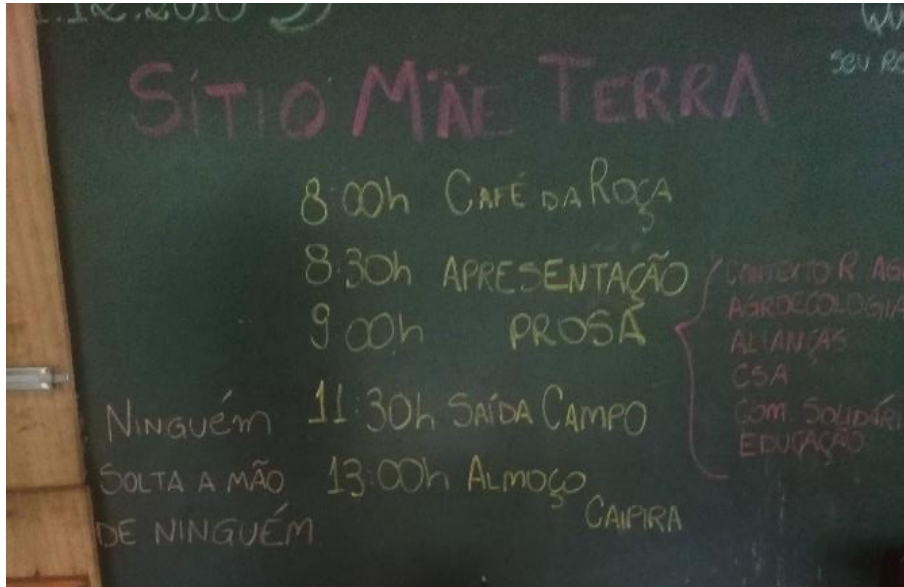 .12.2018
SÍTIO MÃE TERRA
SEU
8:00h CAFÉ DA ROÇA
8:30h APRESENTAÇÃO
9:00h PROSA
CONTEXTO R
AGROECOLOGIA
ALIANÇAS
CSA
COM. SOLIDÁRI
EDUCAÇÃO
11:30h SAÍDA CAMPO
13:00h ALMOÇO
CAIPIRA
NINGUÉM
SOLTA A MÃO
DE NINGUÉM